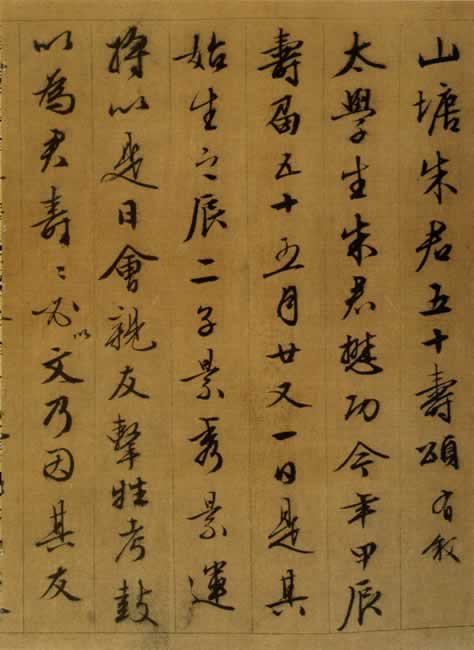 山塘朱君五十壽頌有敘
太學生朱君懋功今年甲辰
壽屆五十五月廿又一日是其
始生之辰二子景秀景運
將以是日會親友擊牲考鼓
以為君壽〻必以文乃因其友